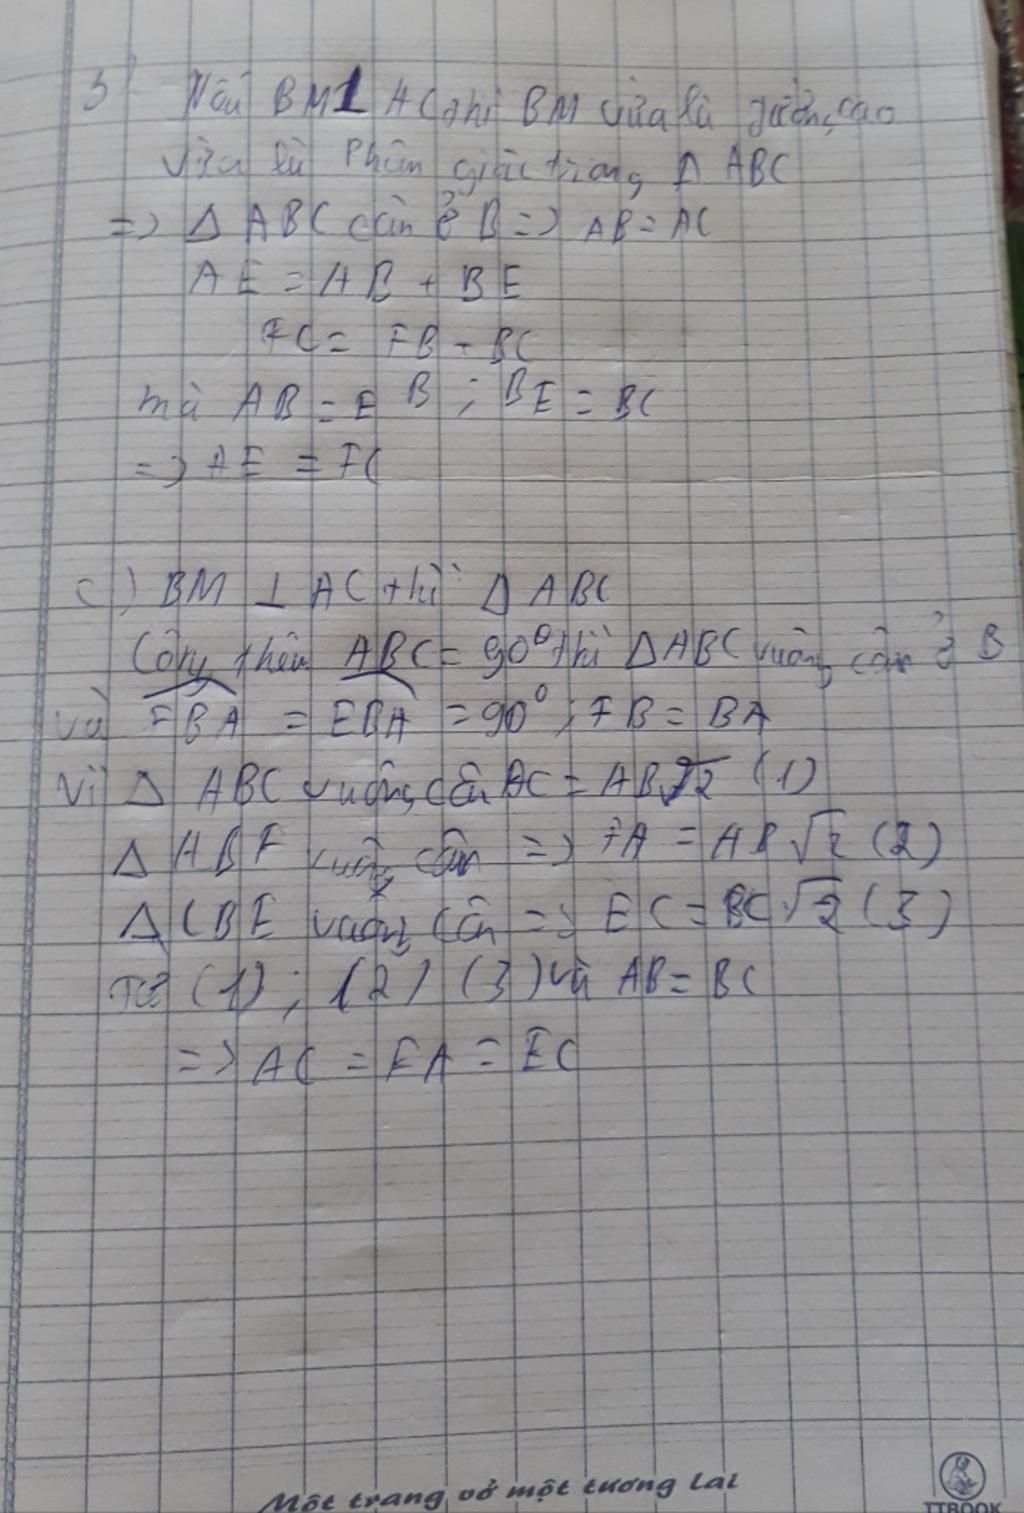 Nếu BM⊥ AC thì BM vừa là đường cao
vừa là Phân giác trong Δ ABC
=> Δ ABC cân ở B => AB = AC
AE = AB + BE
FC = FB + BC
mà AB = E B ; BE = BC
=> AE = FC
c) BM ⊥ AC thì Δ ABC
Cộng thêm ABC = 90⁰ thì ΔABC vuông cân ở B
và FBA = EBA = 90⁰ ; FB = BA
Vì Δ ABC vuông cân AC = AB√2 (1)
Δ ABF vuông cân => FA = AB √2 (2)
Δ CBE vuông cân => EC = BC √2 (3)
Từ (1) ; (2) (3) và AB = BC
=> AC = FA = EC
Một trang vở một tương lai
TTBOOK